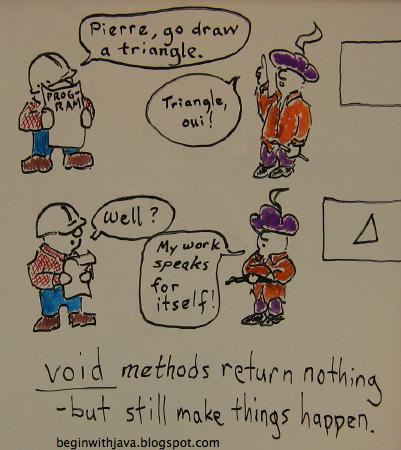 Pierre, go draw
a triangle.
PROG-
RAM
Triangle,
oui!
Well?
My work
speaks
for
itself!
void methods return nothing
-but still make things happen.
beginwithjava.blogspot.com